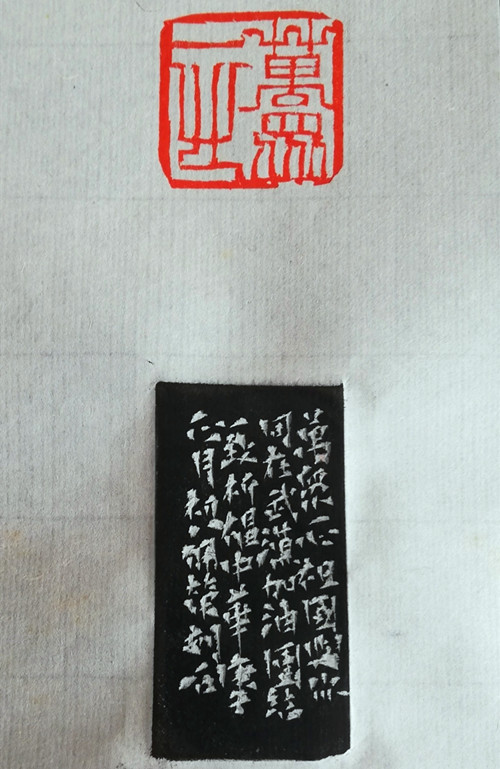 萬衆一心
萬衆一心祖國與你
同在武漢加油團結
一致祈福中華庚子
正月初刻石